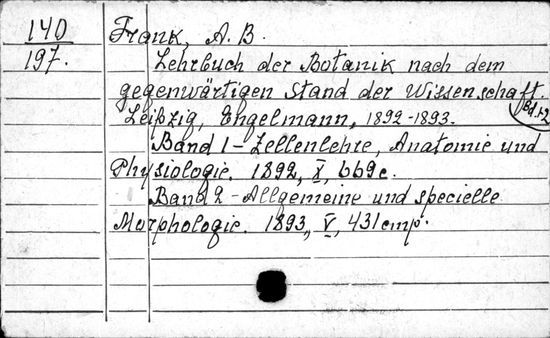 140 Frank, A. B.
197. Lehrbuch der Botanik nach dem
gegenwärtigen Stand der Wissenschaft.
Leipzig, Engelmann, 1892-1893. Bd.1+2
Band 1 - Zellenlehre, Anatomie und
Physiologie. 1892, X, 669c.
Band 2 - Allgemeine und specielle
Morphologie. 1893, V, 431 cmp.